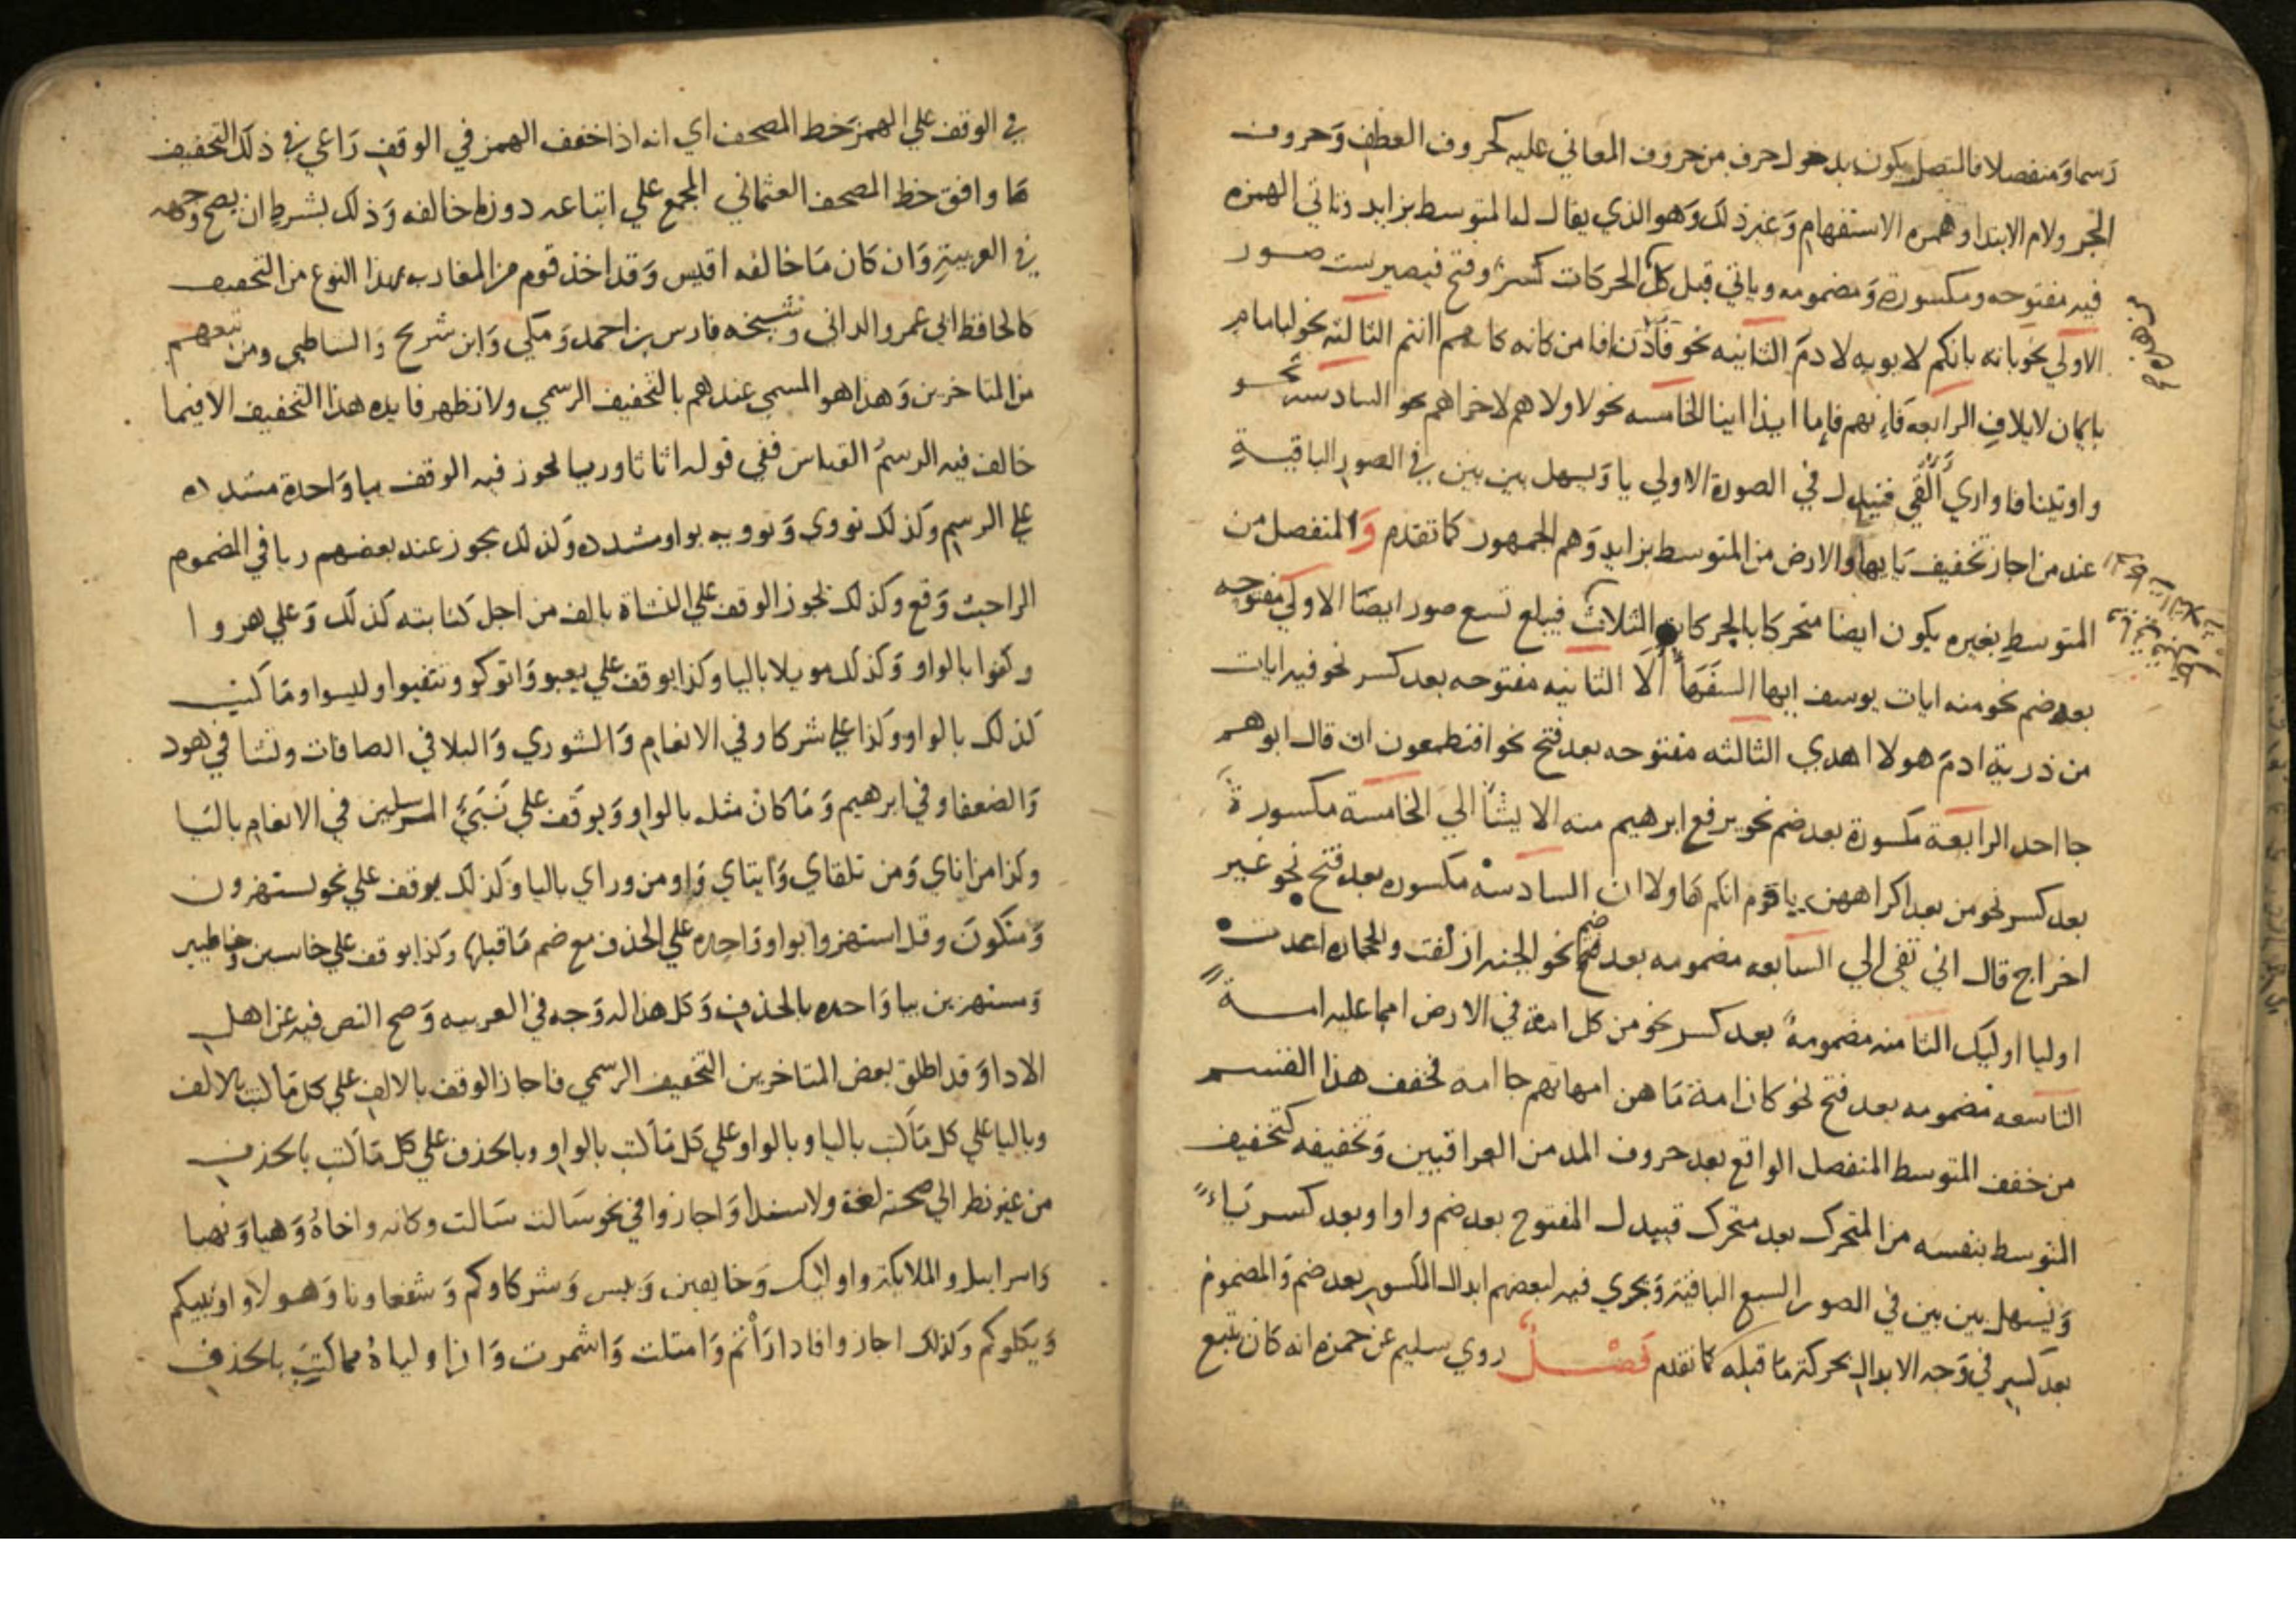 رسما ومنفصلا فالمتصل يكون بدخول حرف من حروف المعاني عليه كحروف العطف وحروف
الجر ولام الابتدا وهمزه الاستفهام وغير ذلك وهو الذي يقال له المتوسط بزايد وتاتي الهمزه
فيه مفتوحه ومكسورة ومضمومه وياتي قبل كل الحركات كسر وفتح فيصير ست صور
الاولي نحو بانه بانكم لابويه لادم الثانيه نحو فأذن افامن كانه كانهم اانتم الثالثه نحو لبامام
بايمان لايلاف الرابعه فانهم فاما ايذا اينا الخامسه نحو لاولاهم لاخراهم السادسه نحو
واوتينا فاواري أألقي فتبدل في الصورة الاولي يا ويسهل بين بين في الصور الباقية
عند من اجاز تخفيف يايها والارض من المتوسط بزايد وهم الجمهور كما تقدم والمنفصل من
المتوسط بغيره يكون ايضا متحركا بالحركات الثلاث فيبلغ تسع صور ايضا الاولي مفتوحه
بعد ضم نحو منه ايات يوسف ايها السفهأ ألا الثانيه مفتوحه بعد كسر نحو فيه ايات
من ذرية ادم هولا اهدي الثالثه مفتوحه بعد فتح نحو افتطمعون ان قال ابوهم
جا احد الرابعة مكسورة بعد ضم نحو يرفع ابرهيم منه الا يشأ الي الخامسة مكسورة
بعد كسر نحو من بعد اكراههن يا قوم انكم هاولا ان السادسه مكسوره بعد فتح نحو غير
اخراج قال اني تفي الي السابعه مضمومه بعد ضم نحو الجنه ازلفت والحجاره اعدت
اوليا اوليك الثامنه مضمومة بعد كسر نحو من كل امة في الارض امما عليه امة
التاسعه مضمومه بعد فتح نحو كان امة ما هن امهاتهم جا امه فخفف هذا القسم
من خفف المتوسط المنفصل الواقع بعد حروف المد من العراقيين وتخفيفه كتخفيف
المتوسط بنفسه من المتحرك بعد متحرك فيبدل المفتوح بعد ضم واوا وبعد كسر ياء
ويسهل بين بين في الصور السبع الباقية ويجري فيه لبعضهم ابدال المكسور بعد ضم والمضموم
بعد كسر في وجه الابدال بحركة ما قبله كما تقدم فصل روي سليم عن حمزه انه كان يتبع
في الوقف علي الهمز خط المصحف اي انه اذا خفف الهمز في الوقف راعي في ذلك التخفيف
ما وافق خط المصحف العثماني المجمع علي اتباعه دون ما خالفه وذلك بشرط ان يصح وجهه
في العربية وان كان ما خالفه اقيس وقد اخذ قوم من المغاربه بهذا النوع من التخفيف
كالحافظ ابي عمرو الداني وشيخه فارس بن احمد ومكي وابن شريح والشاطبي ومن تبعهم
من المتاخرين وهذا هو المسمي عندهم بالتخفيف الرسمي ولا تظهر فايده هذا التخفيف الا فيما
خالف فيه الرسم القياس ففي قوله اثاثا وريا يجوز فيه الوقف بيا واحدة مشدده
علي الرسم وكذلك تووي وتوويه بواو مشدده وكذلك يجوز عند بعضهم ريا في المضموم
الراحيث وقع وكذلك يجوز الوقف علي النشاة بالف من اجل كتابته كذلك وعلي هزوا
وكفوا بالواو وكذلك مويلا باليا وكذا يوقف علي يعبو واتوكو وتتفيوا وليسوا وما كتب
كذلك بالواو وكذا علي شركاو في الانعام والشوري والبلا في الصافات ونشا في هود
والضعفاو في ابرهيم وما كان مثله بالواو ويوقف علي نبي المرسلين في الانعام باليا
وكذا من اناي ومن تلقاي وايتاي واو من وراي باليا وكذلك يوقف علي نحو يستهزون
ومتكون وقل استهزوا بواو واحده علي الحذف مع ضم ما قبلها وكذا يوقف علي خاسين وخاطيين
ومستهزين بيا واحده بالحذف وكل هذا له وجه في العربيه وصح النص فيه عن اهل
الادا وقد اطلق بعض المتاخرين التخفيف الرسمي فاجاز الوقف بالالف علي كل ما كتب بالالف
وباليا علي كل ما كتب باليا وبالواو علي كل ما كتب بالواو وبالحذف علي كل ما كتب بالحذف
من غير نظر الي صحته لغة ولا سندا واجازوا في نحو سالت سالت وكانه واخاه وهيا ونهيا
واسراييل والملايكة واوليك وخايفين وبيس وشركاوكم وشفعاونا وهولا واونبيكم
ويكلوكم وكذلك اجازوا فادارأتم وامتلت واشمزت وان اولياه مما كتب بالحذف